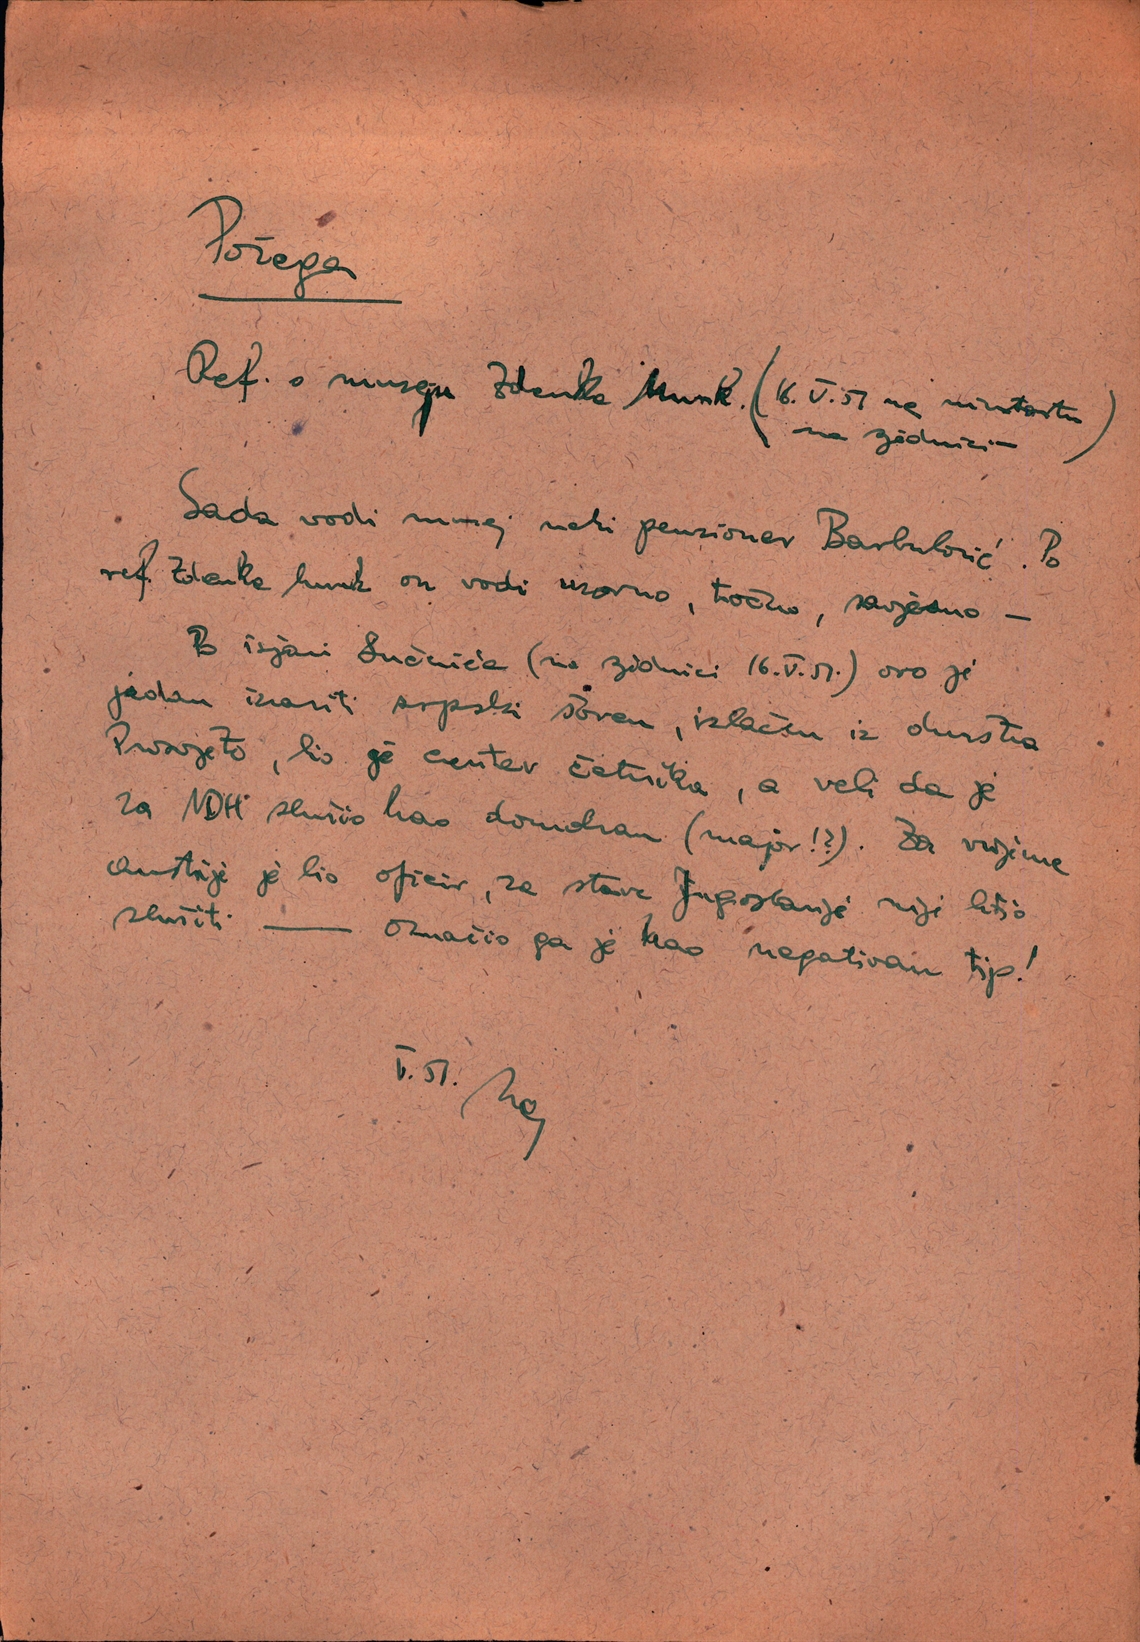 Požega
Ref. o muzeju Zdenka Munk. (16. V. 51 na
na sjednici —
Sada vodi muzej neki penzioner Barbulović. Po
ref. Zdenke Munk on vodi uzorno, točno, savjesno —
Po izjavi Sučevića (na sjednici 16. V. 51.) ovo je
jedan izraziti srpski šoven, izbačen iz društva
Prosvjeta, bio je centar četnika, a veli da je
za NDH služio kao domobran (major!?). Za vrijeme
Austrije je bio oficir, za stare Jugoslavije nije htio
služiti — Označio ga je kao negativan tip!
V. 51.